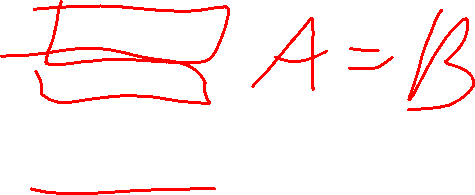 A = B